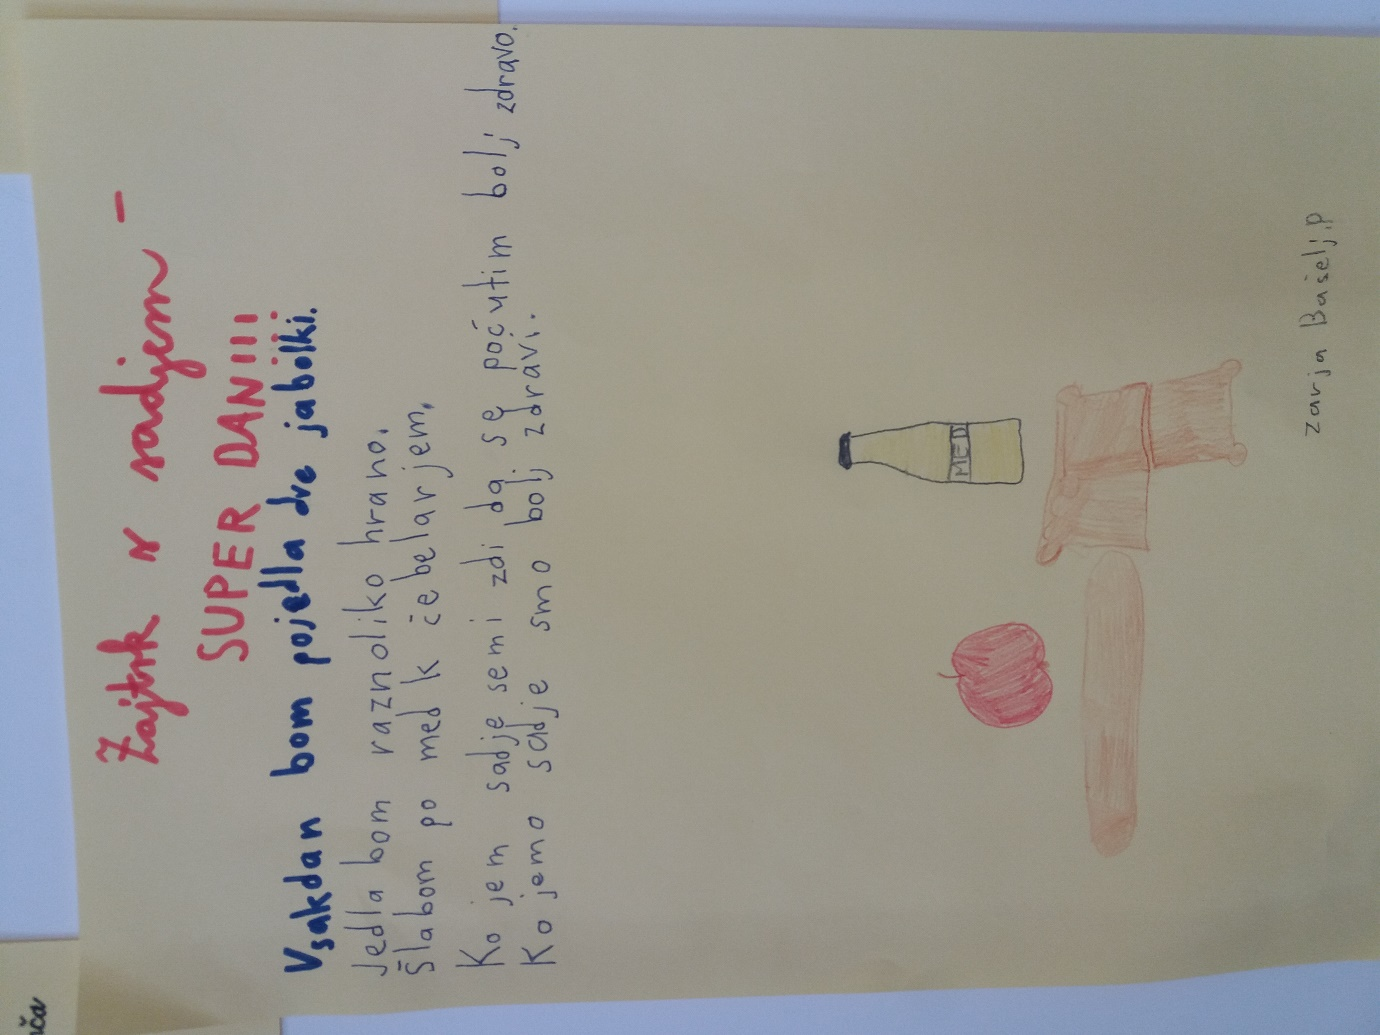 Zajtrk s sadjem -
SUPER DAN!!!
Vsakdan bom pojedla dve jabolki.
Jedla bom raznoliko hrano.
Šlabom po med k čebelarjem.
Ko jem sadje semi zdi da se počutim bolj zdravo.
Ko jemo sadje smo bolj zdravi.
MED
zarja Bašelj, p